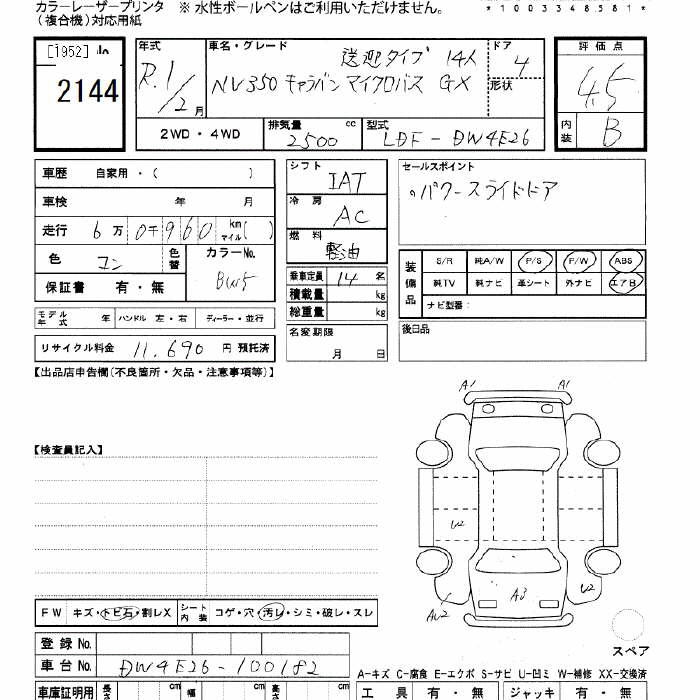 カラーレーザープリンタ ※ 水性ボールペンはご利用いただけません。
(複合機)対応用紙
*1003348581*
[1952]
2144
年式 車名・グレード 送迎タイプ 14人 ドア 4
R.1/2月 NV350 キャラバン マイクロバス GX 形状
2WD・4WD 排気量 2500 cc 型式 LDF-DW4E26
評価点
4.5
内装 B
車歴 自家用・( )
車検 年 月
走行 6万0千960 km マイル( )
色 コン 色替 カラーNo. BW5
保証書 有・無
シフト IAT
冷房 AC
燃料 軽油
乗車定員 14 名
積載量 kg
総重量 kg
名変期限 月 日
セールスポイント
・パワースライドドア
装備品 S/R 純A/W P/S P/W ABS
純TV 純ナビ 革シート 外ナビ エアB
ナビ型番:
後日品
モデル年式 年 ハンドル 左・右 ディーラー・並行
リサイクル料金 11,690 円 預託済
【出品店申告欄(不良箇所・欠品・注意事項等)】
【検査員記入】
A1 A1
U2
AU2 A3 U2
スペア
FW キズ・トビ石・割レX シート内装 コゲ・穴・汚レ・シミ・破レ・スレ
登録No.
車台No. DW4E26-100182
A-キズ C-腐食 E-エクボ S-サビ U-凹ミ W-補修 XX-交換済
車庫証明用 長さ cm 幅 cm 高さ cm
工具 有・無 ジャッキ 有・無